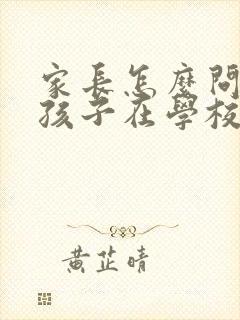 家長怎麼問
孩子在學校
黃芷晴